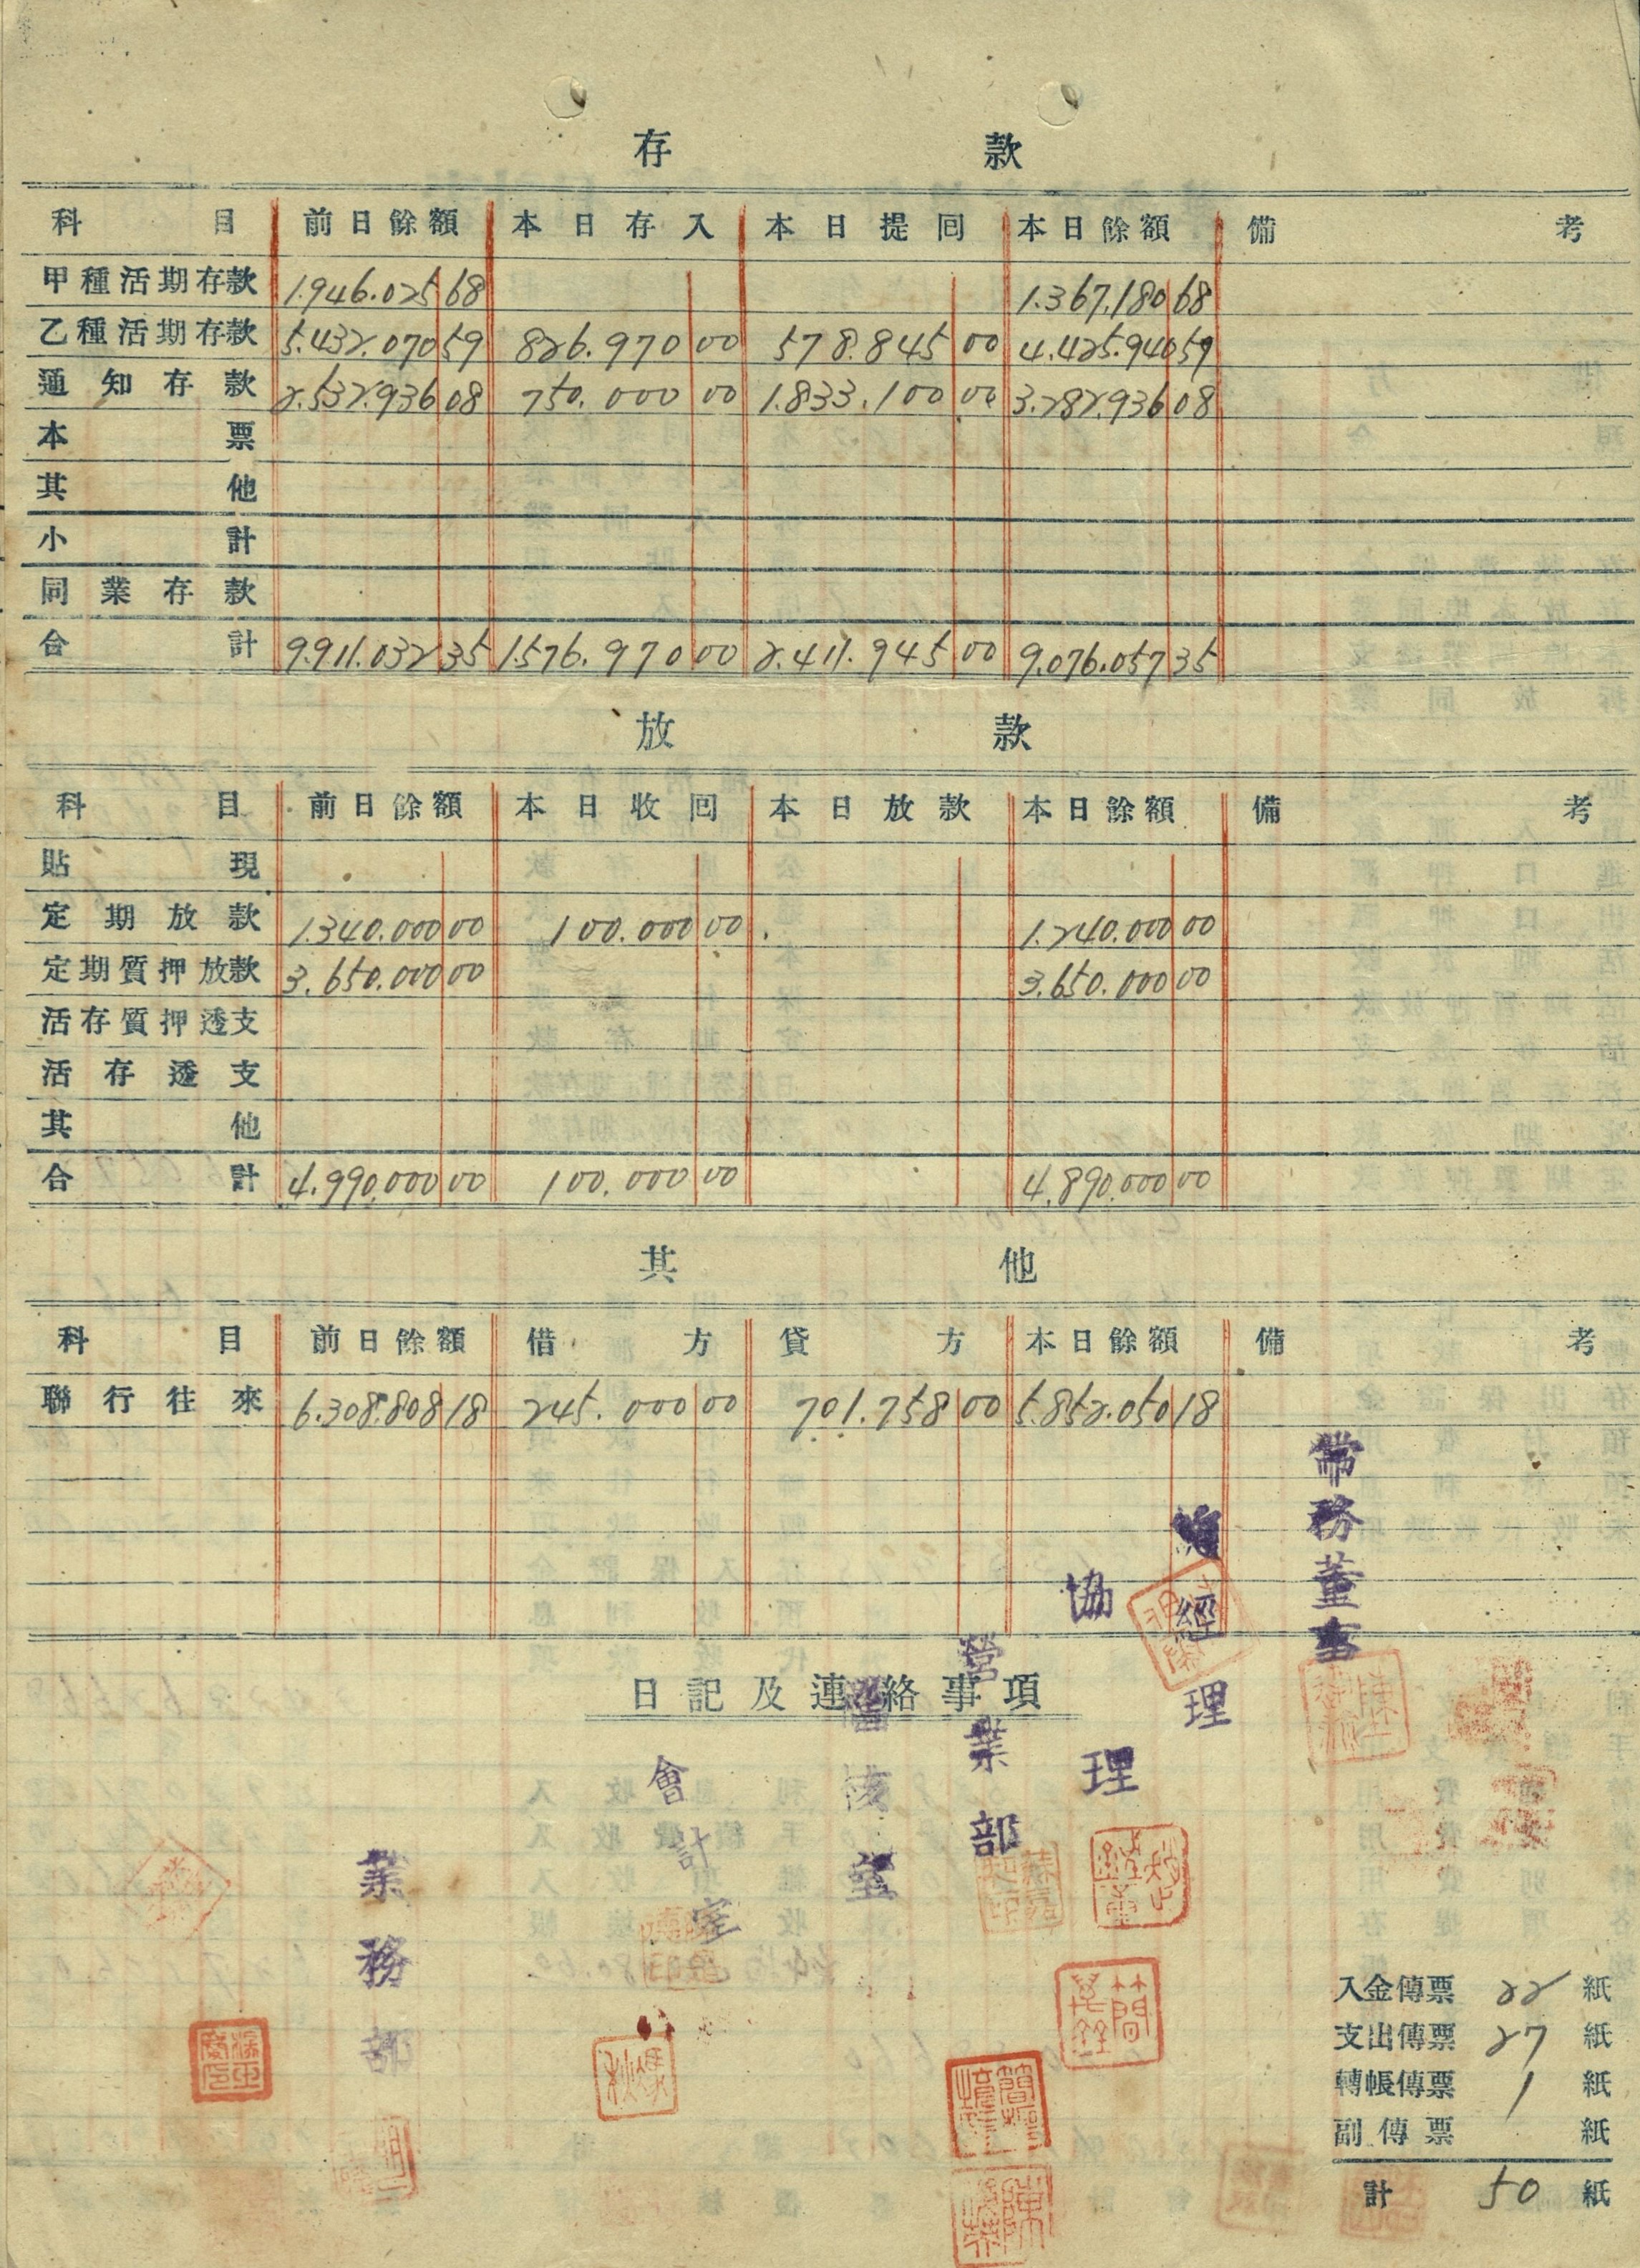 存款
科目 前日餘額 本日存入 本日提回 本日餘額 備考
甲種活期存款 1.946.025 68 1.367.180 68
乙種活期存款 5.432.070 59 826.970 00 578.845 00 4.425.940 59
通知存款 2.532.936 08 750.000 00 1.833.100 00 3.282.936 08
本票
其他
小計
同業存款
合計 9.911.032 35 1.576.970 00 2.411.945 00 9.076.057 35
放款
科目 前日餘額 本日收回 本日放款 本日餘額 備考
貼現
定期放款 1.340.000 00 100.000 00 1.240.000 00
定期質押放款 3.650.000 00 3.650.000 00
活存質押透支
活存透支
其他
合計 4.990.000 00 100.000 00 4.890.000 00
其他
科目 前日餘額 借方 貸方 本日餘額 備考
聯行往來 6.308.808 18 245.000 00 701.758 00 5.852.050 18
日記及連絡事項
常務董事
經理
協理
營業部
室
會計室
業務部
入金傳票 22 紙
支出傳票 27 紙
轉帳傳票 1 紙
副傳票 紙
計 50 紙